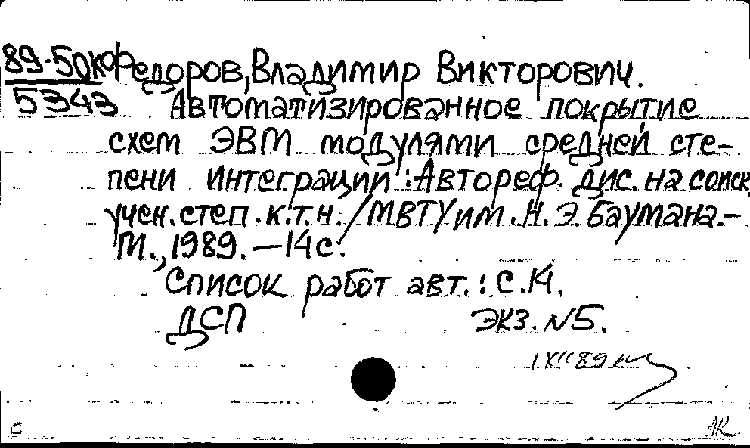 89-50коФедоров, Владимир Викторович.
5343 Автоматизированное покрытие
схем ЭВМ модулями средней сте-
пени интеграции: Автореф. дис. на соиск
учен. степ. к.т.н. / МВТУ им. Н. Э. Баумана.-
М., 1989. — 14 с.
Список работ авт.: с. 14.
ДСП экз. N5.
1 XII 89
с АК